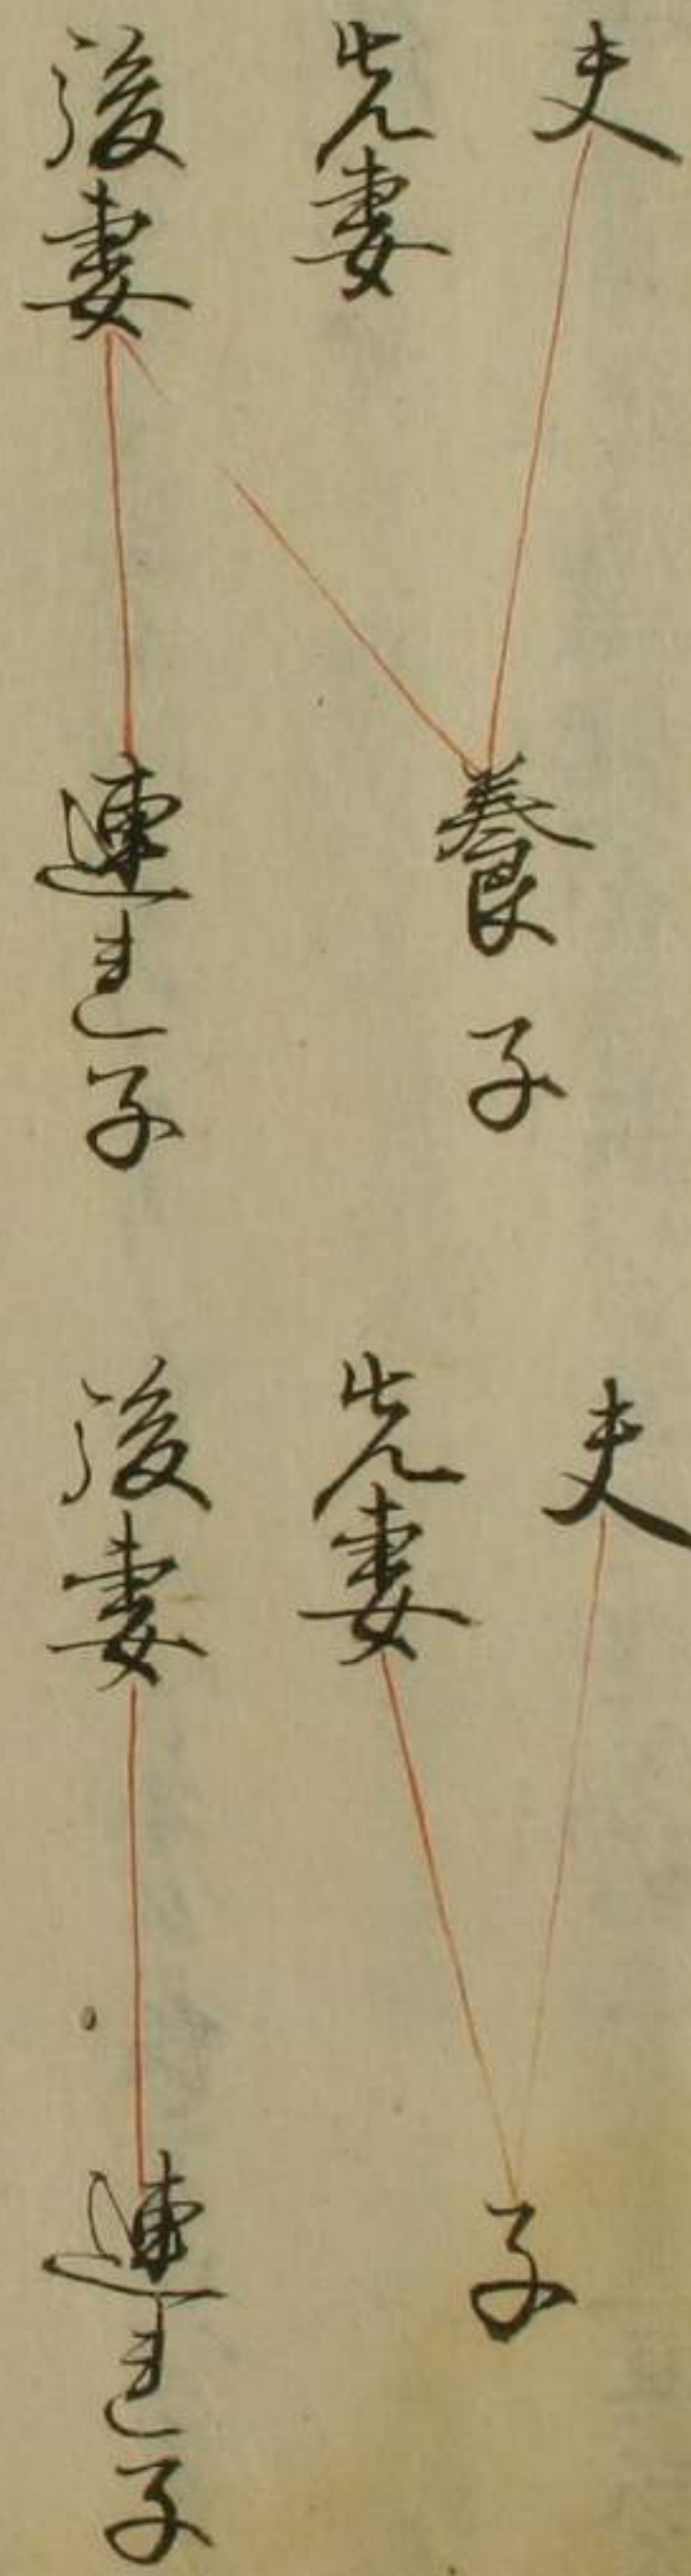 夫
先妻
後妻
養子
連れ子
夫
先妻
後妻
子
連れ子